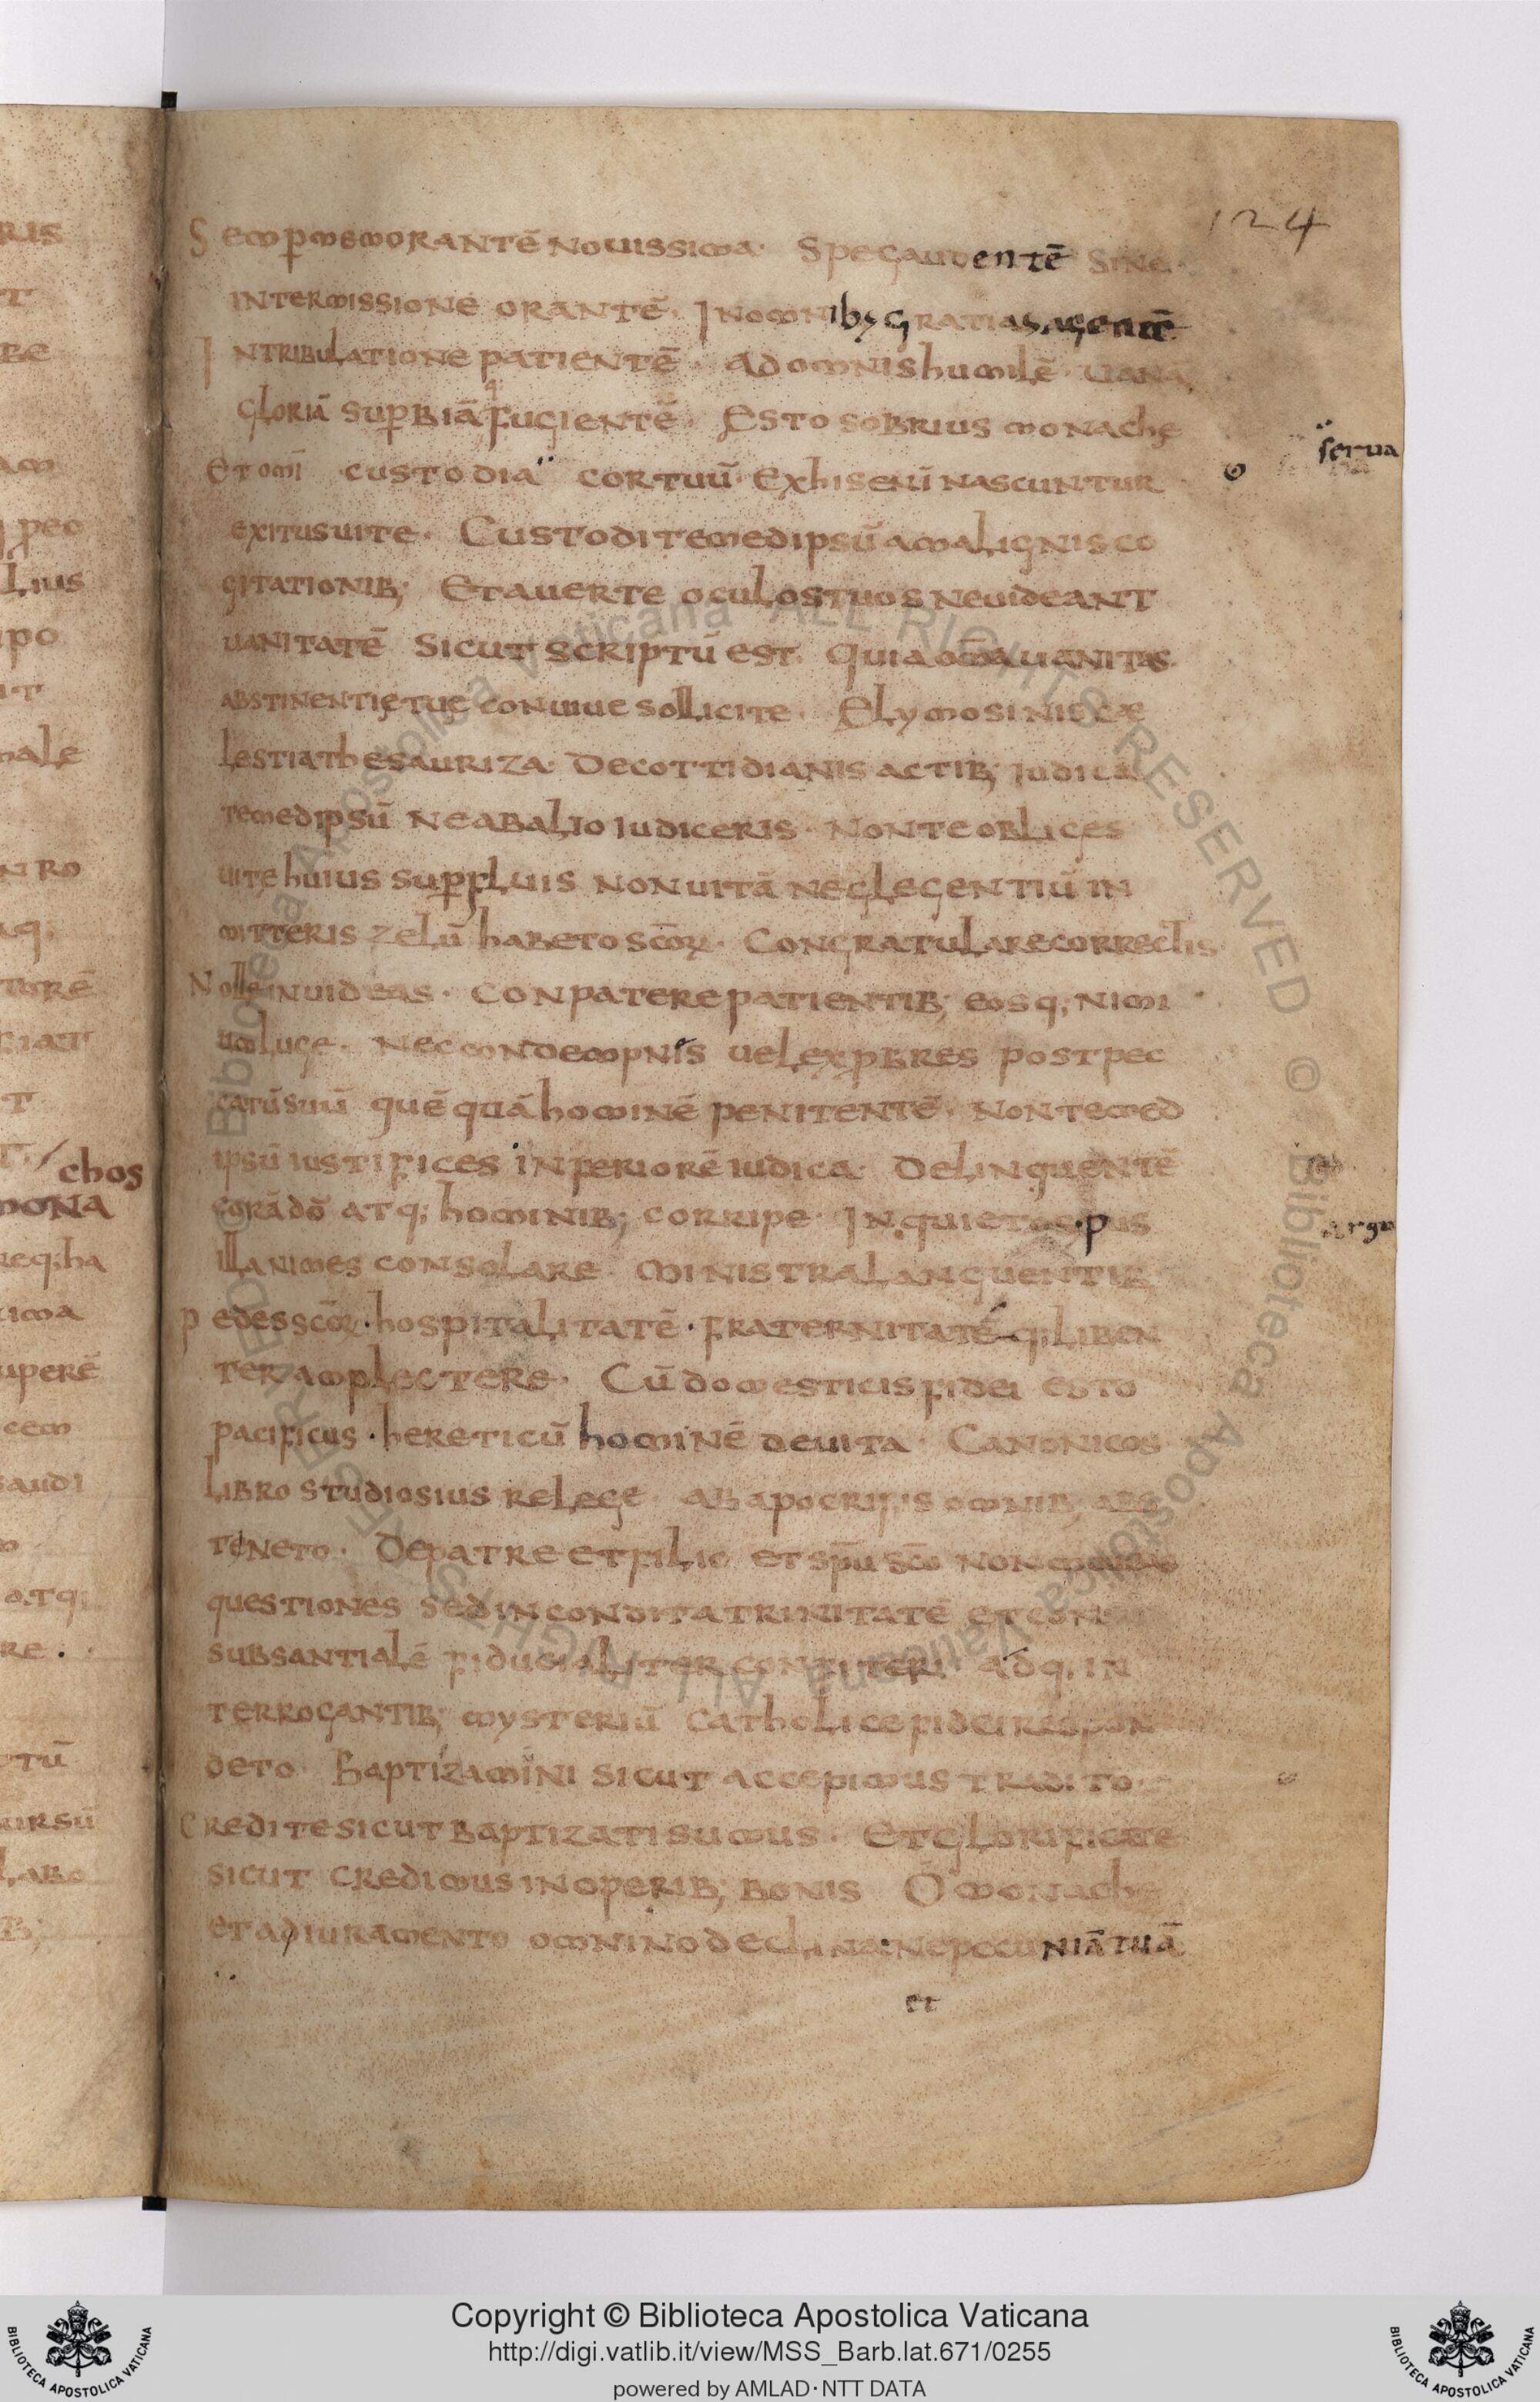 124
Semp memorantē nouissima · Spe gaudentē Sine
intermissione orantē · In omnibus gratias agentē
In tribulatione patientē · ad omnis humilē · uana
gloriā supbiāq; fugientē · Esto sobrius monache
Et omī custodia cor tuū · Ex his enī nascuntur
serua
exitus uite · Custodi temedipsū a malignis co
gitationib; Et auerte oculos tuos ne uideant
uanitatē Sicut scriptū est · Quia om̄a uanitas
abstinentię tuę coniuue sollicite · Elymosinis cæ
lestia thesauriza · De cottidianis actib; iudica
temedipsū ne ab alio iudiceris · Non te obliges
uite huius supfluis non uitā neglegentiū in
mitteris zelū habeto sc̄oꝝ · Congratulare correctis
Nolle inuideas · Conpatere patientib; eosq; nimi
um luge · Nec condempnes uel exp̄bres post pec
catū suū quēquā hominē penitentē · Non temed
ipsū iustifices inferiorē iudica · Delinquentē
corā dō atq; hominib; corripe · Inquietos · pus
argu
illanimes consolare · Ministra languentib;
pedes sc̄oꝝ · hospitalitatē · fraternitatēq; liben
ter amplectere · Cū domesticis fidei esto
pacificus · hereticū hominē deuita · Canonicos
libro studiosius relege · ab apocrifis omnib; abs
teneto · De patre et filio et sp̄u sc̄o non
questiones sed incondita trinitatē et con
subsantialē fiducialiter confiteri · adq; in
terrogantib; mysteriū catholice fidei respon
deto · Baptizamini sicut accepimus tradito
Credite sicut baptizati sumus · Et glorificate
sicut credimus in operib; bonis O monache
et a diuramento omnino declina: ne pecuniā tuā
et
RIS
T
RE
am
peo
lius
ipo
nale
N RO
aq;
T
chos
mona
req; ha
ima
uperē
cem
audi
atq;
re ·
tū
ursū
labo
Copyright © Biblioteca Apostolica Vaticana
http://digi.vatlib.it/view/MSS_Barb.lat.671/0255
powered by AMLAD·NTT DATA
BIBLIOTECA APOSTOLICA VATICANA
BIBLIOTECA APOSTOLICA VATICANA
Biblioteca Apostolica Vaticana ALL RIGHTS RESERVED ©